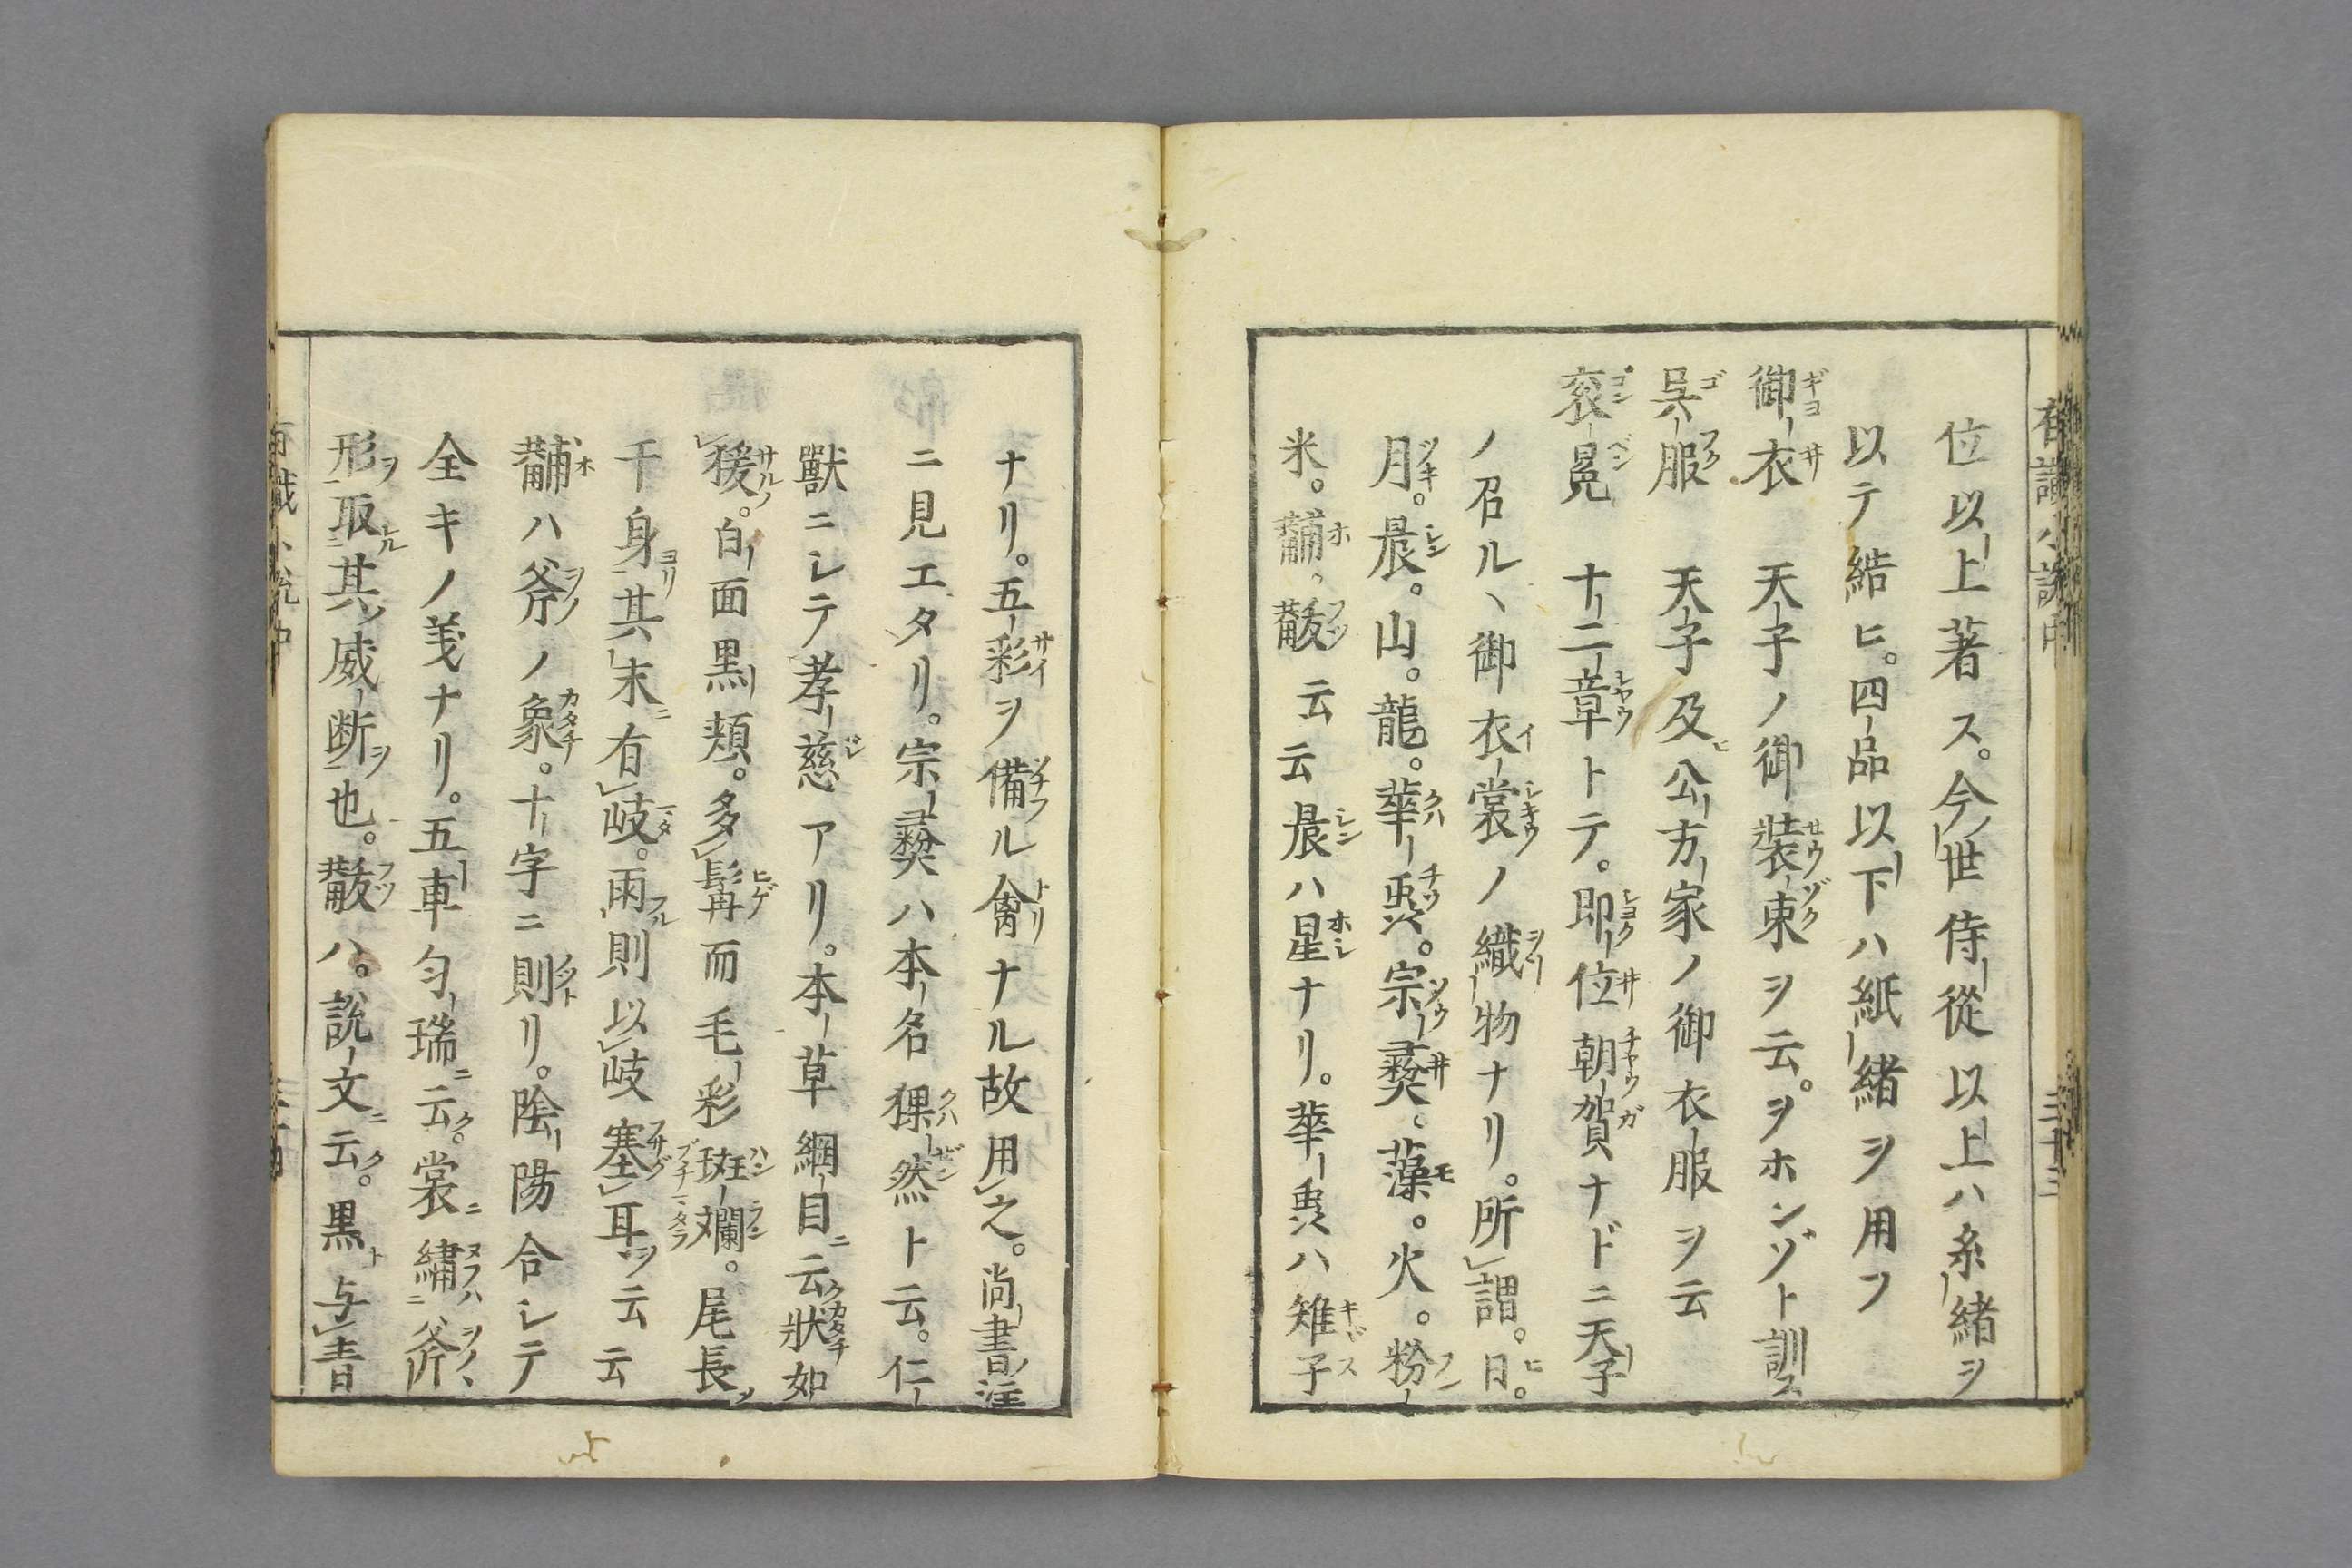 位以上著ス。今世侍從以上ハ糸緒ヲ
以テ結ヒ。四品以下ハ紙緒ヲ用フ
御衣　天子ノ御装束ヲ云。ヲホンゾト訓ス
呉服　天子及公方家ノ御衣服ヲ云
衮冕　十二章トテ。即位朝賀ナドニ天子
ノ召ルヽ御衣裳ノ織物ナリ。所謂。日。
月。晨。山。龍。華虫。宗彛、藻。火。粉
米。黼。黻云云晨ハ星ナリ。華虫ハ雉子
ナリ。五彩ヲ備ル禽ナル故用之。尚書注
ニ見エタリ。宗彛ハ本名猓然ト云。仁
獸ニシテ孝慈アリ。本草綱目ニ云狀如
猨。白面黒頬。多髯而毛彩斑斕。尾長
于身其末有岐。雨則以岐塞耳ヲ云云
黼ハ斧ノ象。十字ニ則リ。陰陽合シテ
全キノ義ナリ。五車匀瑞ニ云。裳繡斧
形取其威断也。黻ハ。説文ニ云。黒与青